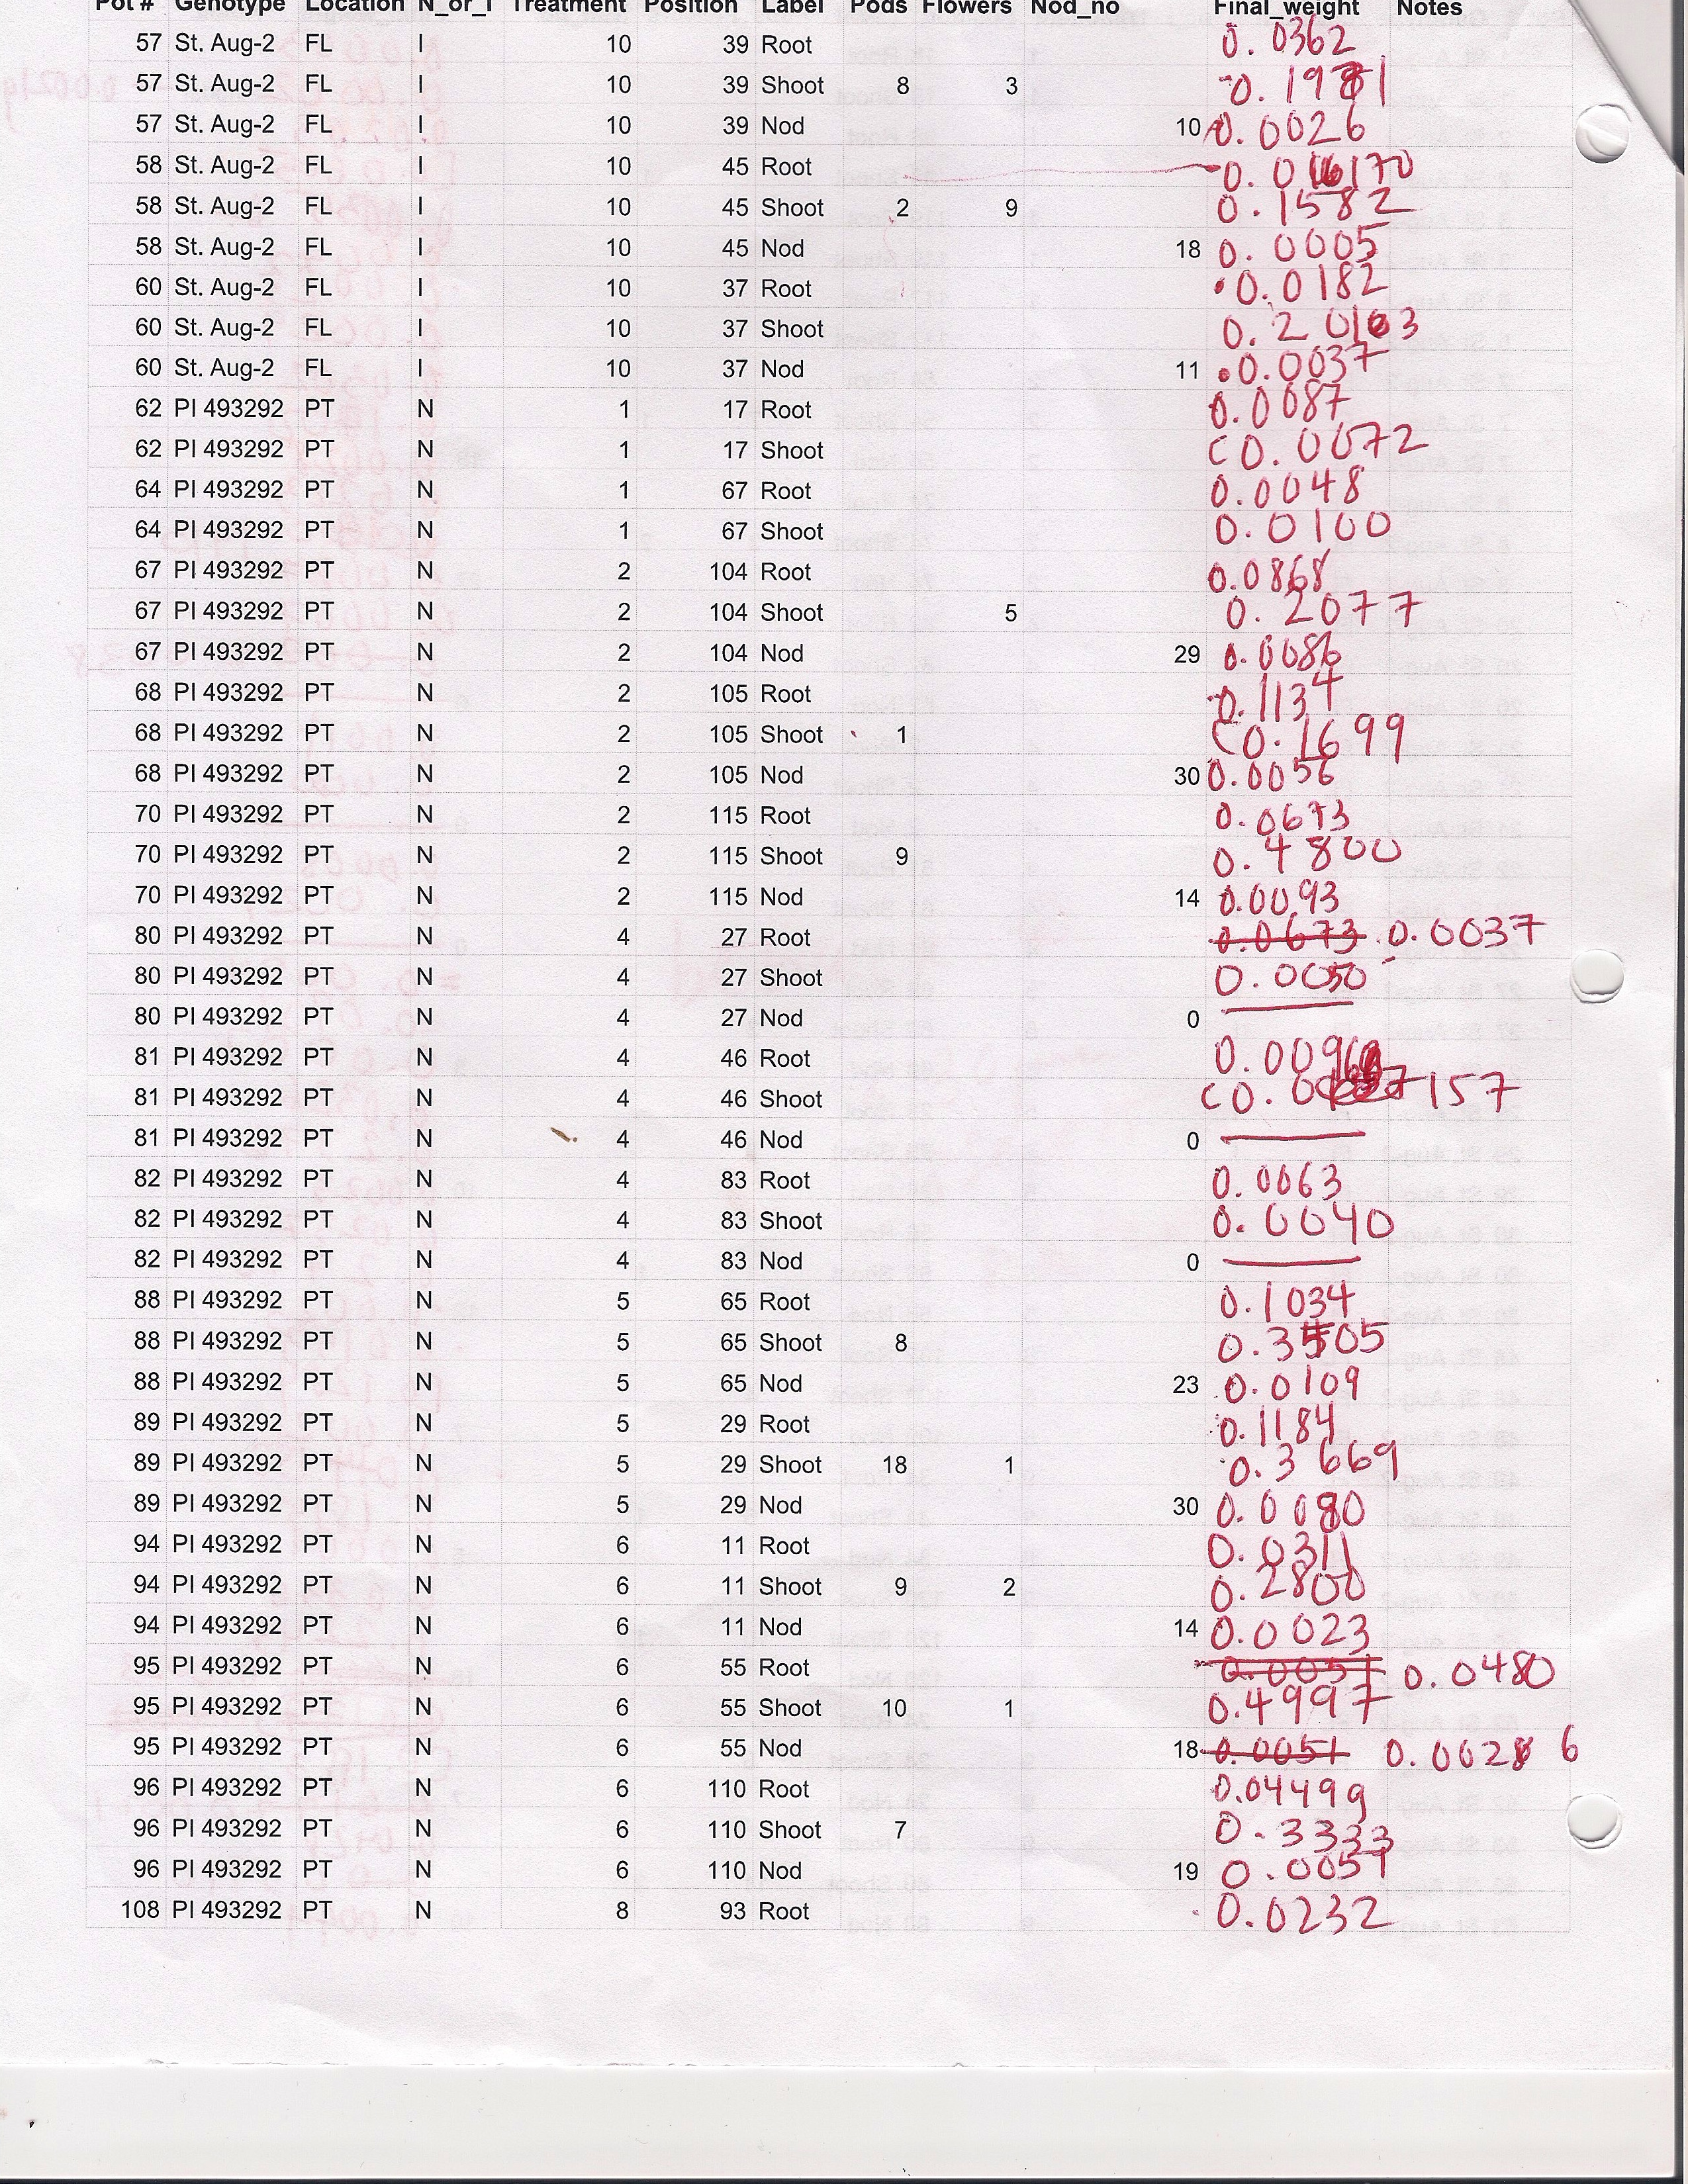 Pot # Genotype Location N_or_I Treatment Position Label Pods Flowers Nod_no Final_weight Notes
57 St. Aug-2 FL I 10 39 Root 0.0362
57 St. Aug-2 FL I 10 39 Shoot 8 3 0.1981
57 St. Aug-2 FL I 10 39 Nod 10 0.0026
58 St. Aug-2 FL I 10 45 Root
58 St. Aug-2 FL I 10 45 Shoot 2 9 0.1582
58 St. Aug-2 FL I 10 45 Nod 18 0.0005
60 St. Aug-2 FL I 10 37 Root 0.0182
60 St. Aug-2 FL I 10 37 Shoot
60 St. Aug-2 FL I 10 37 Nod 11 0.0037
62 PI 493292 PT N 1 17 Root 0.0087
62 PI 493292 PT N 1 17 Shoot 0.0072
64 PI 493292 PT N 1 67 Root 0.0048
64 PI 493292 PT N 1 67 Shoot 0.0100
67 PI 493292 PT N 2 104 Root 0.0868
67 PI 493292 PT N 2 104 Shoot 5 0.2077
67 PI 493292 PT N 2 104 Nod 29 0.0086
68 PI 493292 PT N 2 105 Root 0.1134
68 PI 493292 PT N 2 105 Shoot 1 0.1699
68 PI 493292 PT N 2 105 Nod 30 0.0056
70 PI 493292 PT N 2 115 Root 0.0673
70 PI 493292 PT N 2 115 Shoot 9 0.4800
70 PI 493292 PT N 2 115 Nod 14 0.0093
80 PI 493292 PT N 4 27 Root 0.0673 0.0037
80 PI 493292 PT N 4 27 Shoot 0.0050
80 PI 493292 PT N 4 27 Nod 0
81 PI 493292 PT N 4 46 Root
81 PI 493292 PT N 4 46 Shoot 157
81 PI 493292 PT N 4 46 Nod 0
82 PI 493292 PT N 4 83 Root 0.0063
82 PI 493292 PT N 4 83 Shoot 0.0040
82 PI 493292 PT N 4 83 Nod 0
88 PI 493292 PT N 5 65 Root 0.1034
88 PI 493292 PT N 5 65 Shoot 8 0.3505
88 PI 493292 PT N 5 65 Nod 23 0.0109
89 PI 493292 PT N 5 29 Root 0.1184
89 PI 493292 PT N 5 29 Shoot 18 1 0.3669
89 PI 493292 PT N 5 29 Nod 30 0.0080
94 PI 493292 PT N 6 11 Root 0.0311
94 PI 493292 PT N 6 11 Shoot 9 2 0.2800
94 PI 493292 PT N 6 11 Nod 14 0.0023
95 PI 493292 PT N 6 55 Root 0.0051 0.0480
95 PI 493292 PT N 6 55 Shoot 10 1 0.4997
95 PI 493292 PT N 6 55 Nod 18 0.0051 0.0028 6
96 PI 493292 PT N 6 110 Root 0.04499
96 PI 493292 PT N 6 110 Shoot 7 0.3333
96 PI 493292 PT N 6 110 Nod 19 0.0051
108 PI 493292 PT N 8 93 Root 0.0232